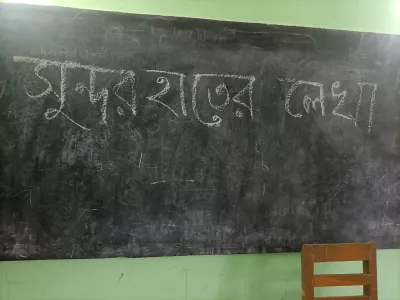 সুন্দর হাতের লেখা